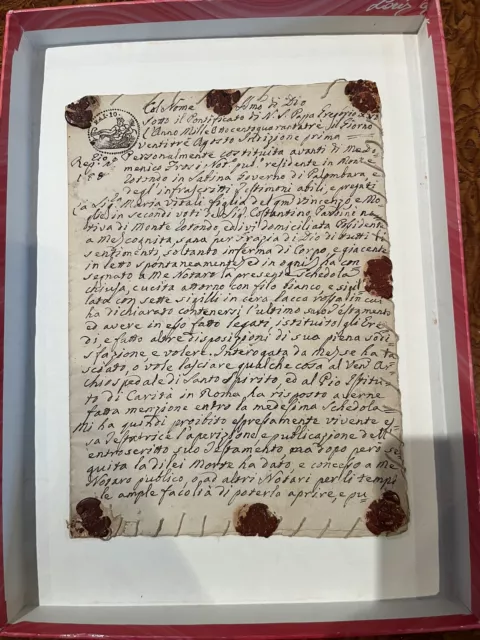 Col Nome SSmo di Dio
Sotto il Pontificato di N. S. Papa Gregorio XVI
l'Anno Mille Ottocentoquarataтrè il Giorno
ventitre Agosto Indizione prima
Personalmente costituita avanti di me Do
Rep. no
158
menico Frosi Not. pub. residente in Monte
Rotondo in Sabina Governo di Palombara, e
degl'infrascritti Testimonj abili, e pregati
La Sig. Maria Vitali figlia del qm Vincenzo, e Mo
glie in secondi voti del Sig. Costantino na
tiva di Monte Rotondo, ed ivi domiciliata Possidente
a Me cognita sana per Grazia di Dio di tutti i
sentimenti, soltanto inferma di Corpo, e giacente
in letto spontaneamente, ed in ogni ha con
segnato a Me Notaro la presente Schedola
chiusa, cucita attorno con filo bianco, e sigil
lata con sette sigilli in cera lacca rossa in cui
ha dichiarato contenersi l'ultimo suo Testamento
ed avere in esso fatto legati, istituito gli Ere
di, e fatto altre disposizioni di sua piena sodi
sfazione e volere. Interogata da me, se ha la
sciato, o vole lasciare qualche cosa al Ven. Ar
chiospedale di Santo Spirito, ed al Pio Istituto
di Carità in Roma, ha risposto averne
fatta menzione entro la medesima Schedola
Mi ha quindi proibito espressamente vivente es
sa testatrice l'aperizione, e publicazione dell'
entroscritto suo Testamento ma dopo però se
guita la di lei Morte ha dato, e concesso a Me
Notaro publico, o ad altri Notari per li tempi
le ample facoltà di poterlo aprire, e pu